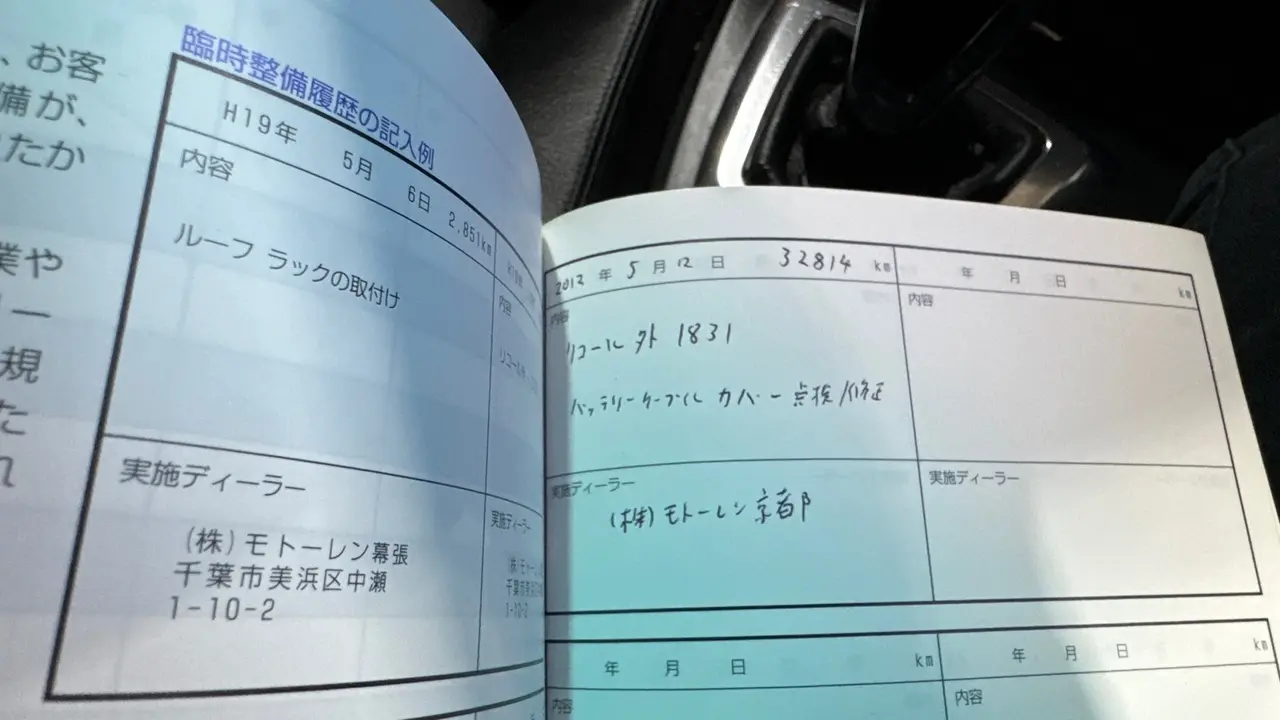 、お客
備が、
たか
業や
ー
規
た
れ
臨時整備履歴の記入例
H19年 5月 6日 2,851km
内容
ルーフ ラックの取付け
実施ディーラー
(株)モトーレン幕張
千葉市美浜区中瀬
1-10-2
内容
実施ディーラー
1-10-2
2012年 5月 12日 32814 km
内容
リコール外 1831
バッテリーケーブル カバー点検/修正
実施ディーラー
(株)モトーレン京都
年 月 日 km
内容
実施ディーラー
年 月 日 km
内容
年 月 日 km
内容